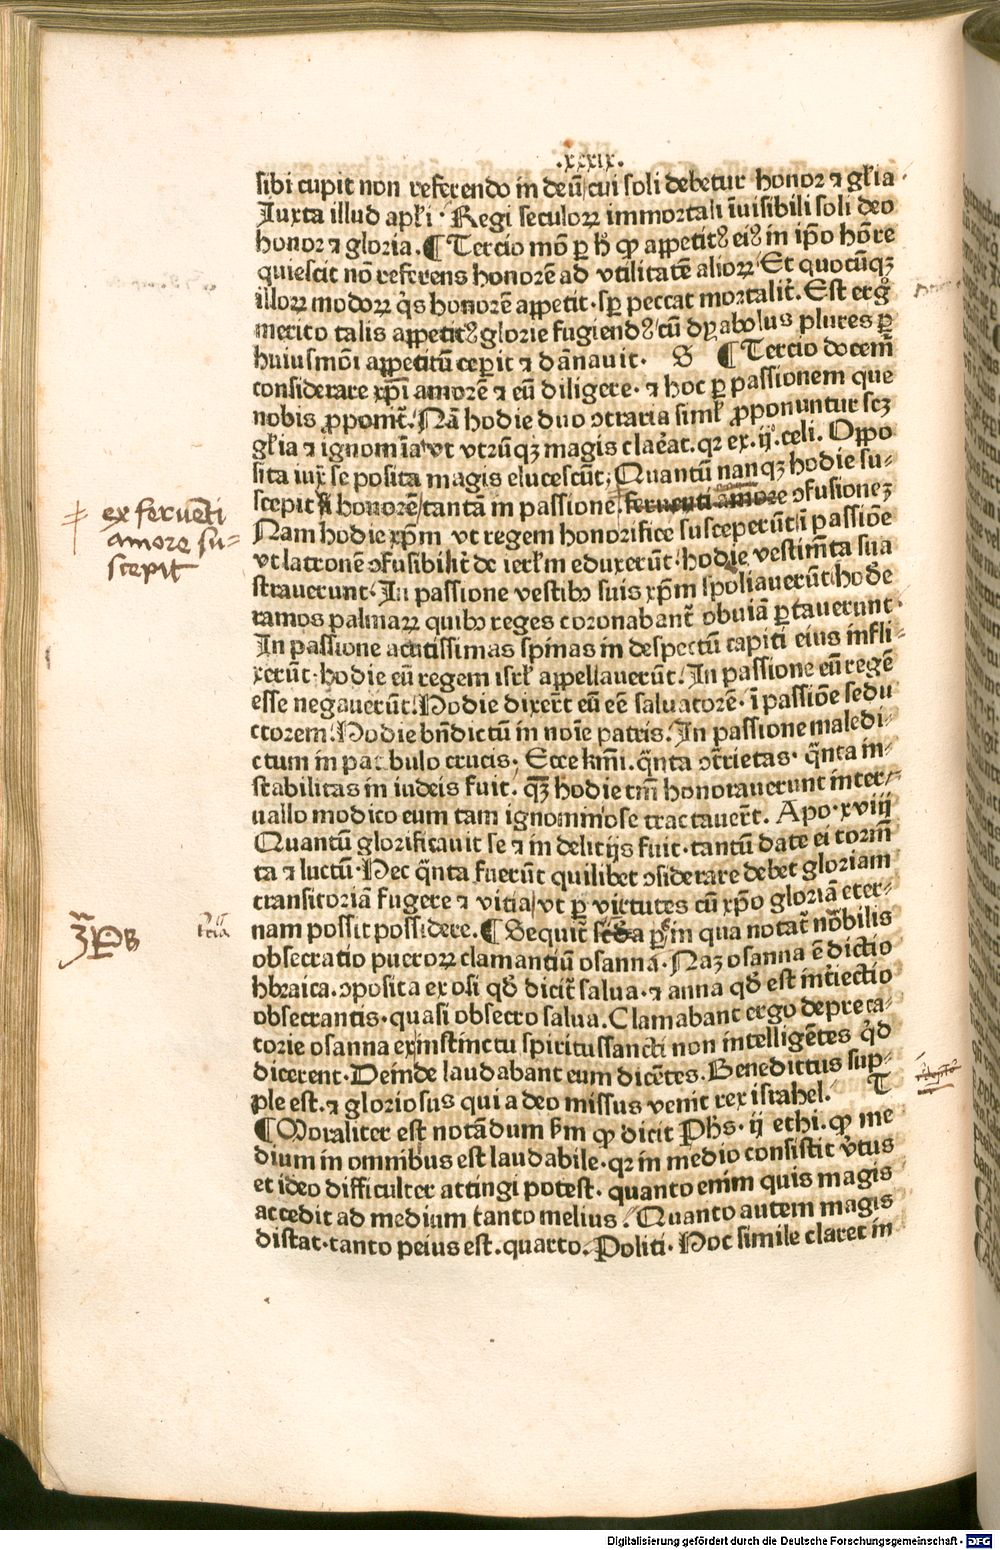 .xxxix.
sibi cupit non referendo in deū cui soli debetur honor ⁊ gl'ia.
Iuxta illud apl'i. Regi seculoꝝ immortali īuisibili soli deo
honor ⁊ gloria. ¶ Tercio mō ꝑ hͦ ꝙ appetitꝰ eiꝰ in ip̄o hōre
quiescit nō referens honorē ad vtilitatē alioꝝ Et quocūqꝫ
illoꝝ modoꝝ q̇s honorē appetit. sꝑ peccat mortalit̄. Est ergͦ
merito talis appetitꝰ glorie fugiendꝰ cū dyabolus plures ꝑ
huiusmōi appetitū cepit ⁊ dānauit. S ¶ Tercio docem̄
considerare xp̄i amorē ⁊ eū diligere. ⁊ hoc ꝑ passionem que
nobis ꝓponit̄. Nā hodie duo ↄtraria siml' ꝓponuntur scꝫ
gl'ia ⁊ ignomīa vt vtrūqꝫ magis clareat. qꝛ ex .ij. celi. Oppo
sita iux̄ se posita magis elucescūt, Quantū nanqꝫ hodie su-
scepit honorē tantā in passione feruenti amore ↄfusioneꝫ
Nam hodie xp̄m vt regem honorifice susceperūt ī passiōe
vt latronē ↄfusibilit̄ de ierl'm eduxerūt. hodie vestim̄ta sua
strauerunt. In passione vestibꝰ suis xp̄m spoliauerūt hodie
ramos palmaꝝ quibꝰ reges coronabant̄ obuiā ꝑtauerunt.
In passione acutissimas spinas in despectū capiti eius infli-
xerūt. hodie eū regem isrl' appellauerūt. In passione eū regē
esse negauerūt. Hodie dixer̄t eū eē saluatorē. ī passiōe sedu
ctorem. Hodie bn̄dictū in noīe patris. In passione maledi-
ctum in patibulo crucis. Ecce kmī. q̈nta ↄtrietas. q̈nta in-
stabilitas in iudeis fuit. qꝫ hodie tm̄ honorauerunt inter-
uallo modico eum tam ignominiose tractauer̄t. Apo. xviij
Quantū glorificauit se ⁊ in delicijs fuit. tantū date ei torm̄
ta ⁊ luctū. Hec q̈nta fuerūt quilibet ↄsiderare debet gloriam
transitoriā fugere ⁊ vitia vt ꝑ virtutes cū xp̄o gloriā eter-
nam possit possidere. ¶ Sequit̄ scd̄a ꝑs in qua notat̄ nōbilis
obsecratio pueroꝝ clamantiū osanna. Naꝫ osanna ē dictio
hbraica. ↄposita ex osi qd̄ dicit̄ salua. ⁊ anna qd̄ est int̄iectio
obsecrantis. quasi obsecro salua. Clamabant ergo depreca-
torie osanna ex instinctu spiritussancti non intelligētes q̇d
dicerent. Deinde laudabant eum dicētes. Benedictus sup-
ple est. ⁊ gloriosus qui a deo missus venit rex israhel. T
¶ Moraliter est notādum ẜm ꝙ dicit Ph̄s. ij ethi. ꝙ me
dium in omnibus est laudabile. qꝛ in medio consistit v̇tus
et ideo difficulter attingi potest. quanto enim quis magis
accedit ad medium tanto melius. Quanto autem magis
distat. tanto peius est. quarto. Politi. Hoc simile claret in
ex feruēti
amore su=
scepit